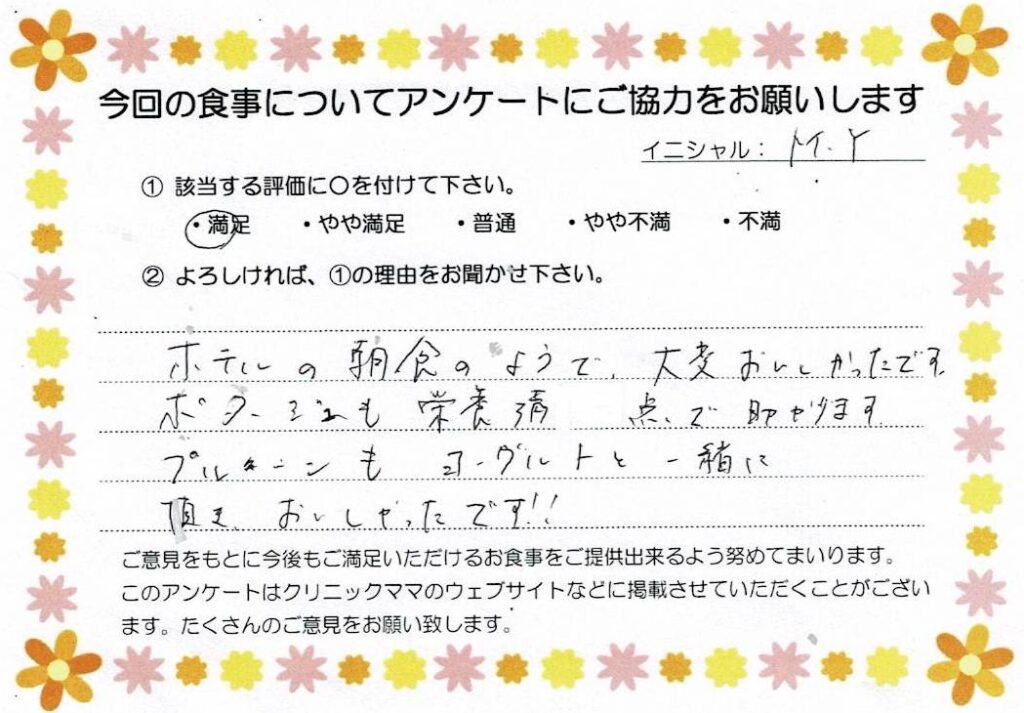 今回の食事についてアンケートにご協力をお願いします
イニシャル： M.Y
① 該当する評価に〇を付けて下さい。
・満足 ・やや満足 ・普通 ・やや不満 ・不満
② よろしければ、①の理由をお聞かせ下さい。
ホテルの朝食のようで、大変おいしかったです
ポタージュも栄養満点で助かります
プルーンもヨーグルトと一緒に
頂き、おいしかったです!!
ご意見をもとに今後もご満足いただけるお食事をご提供出来るよう努めてまいります。
このアンケートはクリニックママのウェブサイトなどに掲載させていただくことがござい
ます。たくさんのご意見をお願い致します。